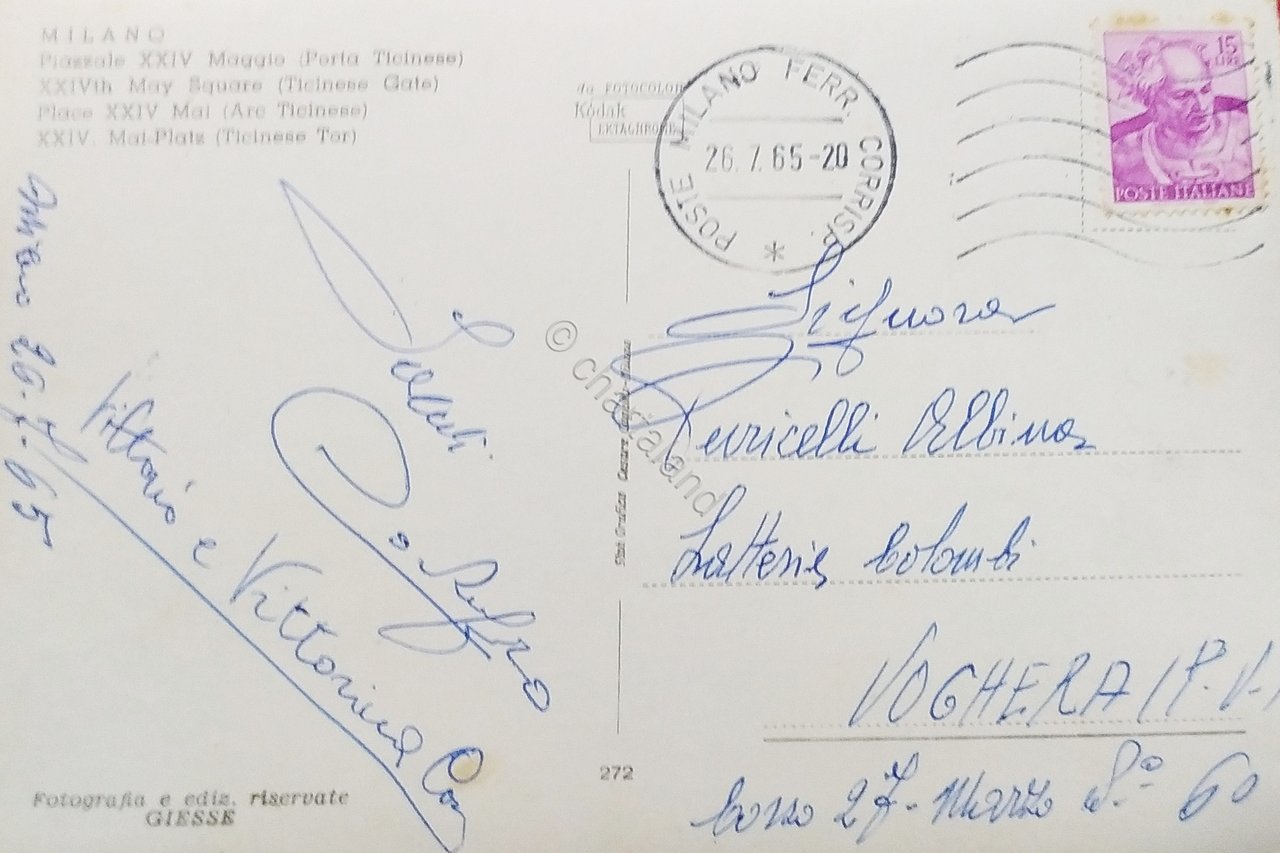 MILANO
Piazzale XXIV Maggio (Porta Ticinese)
XXIVth May Square (Ticinese Gate)
Place XXIV Mai (Arc Ticinese)
XXIV. Mai-Platz (Ticinese Tor)
FOTOCOLOR
Kodak
EKTACHROME
POSTE MILANO FERR. CORRISP. *
26.7.65-20
15
LIRE
POSTE ITALIANE
Milano 26-7-65
Saluti
Vittorio e Vittorina
© chartaland
Signora
Puricelli Albina
Latteria Colombi
VOGHERA (P.V.)
Corso 27 - Marzo 60
272
Fotografia e ediz. riservate
GIESSE